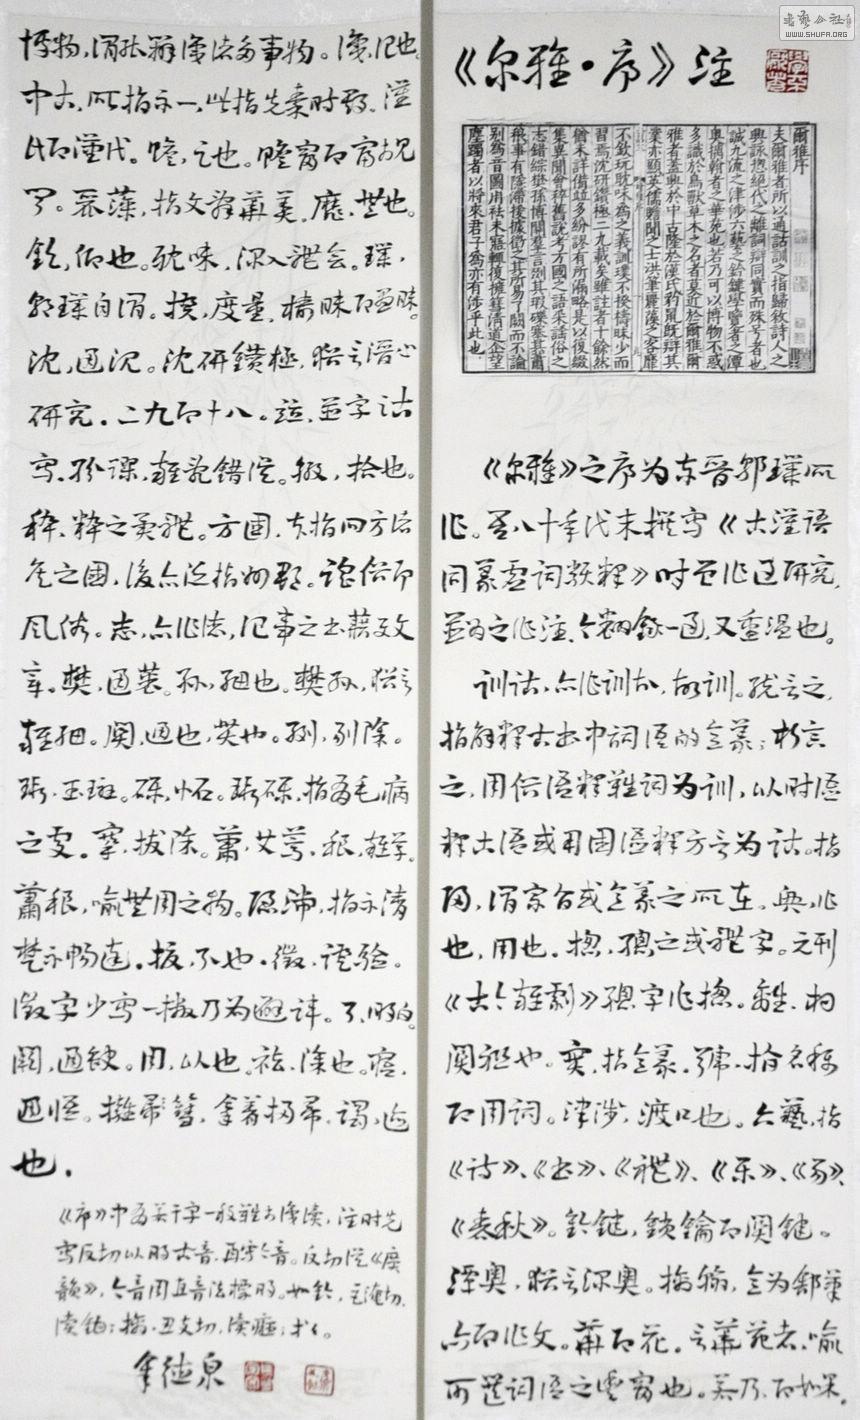 《尔雅·序》注
爾雅序
夫爾雅者所以通詁訓之指歸敘詩人之
興詠揔絕代之離詞辯同實而殊号者也
誠九流之津涉六藝之鈐鍵學覽者之潭
奧摛翰者之華苑也若乃可以博物不惑
多識於鳥獸草木之名者莫近於爾雅爾
雅者蓋興於中古隆於漢氏豹鼠既辯其
業亦顯英儒贍聞之士洪筆麗藻之客靡
不欽玩耽味為之義訓璞不揆檮昧少而
習焉沈研鑽極二九載矣雖註者十餘然
猶未詳備竝多紛謬有所漏略是以復綴
集異聞會稡舊說考方國之語采謠俗之
志錯綜樊孫博關羣言剟其瑕礫搴其蕭
稂事有隱滯援據徵之其所易了闕而不論
別為音圖用祛未寤輒復擁篲清道企望
塵躅者以將來君子為亦有涉乎此也
《尔雅》之序为东晋郭璞所
作。吾八十年代末撰写《古汉语
同義虚词类释》时曾作过研究,
並为之作注,今翻錄一通,又重温也。
训诂,亦作训故,故训。统言之,
指解释古书中词语的意義;析言
之,用俗语释难词为训,以时语
释古语或用国语释方言为诂。指
归,谓宗旨或意義之所在。興,作
也,用也。揔,總之或體字。元刊
《古今雜劇》總字作揔。離,相
関聯也。實,指意義。號,指名稱
即用词。津涉,渡口也。六藝,指
《诗》、《书》、《禮》、《乐》、《易》、
《春秋》。鈐鍵,鎖鑰即関鍵。
潭奥,猶言深奥。摛翰,意为鋪筆
亦即作文。華即花。言華苑者,喻
可選词语之雲窩也。若乃,即如果。
博物,谓能辨識諸多事物。識,记也。
中古,所指不一,此指先秦时期。漢
氏即漢代。贍,足也。贍富即富見
聞。麗藻,指文辞華美。靡,無也。
欽,仰也。耽味,深入體会。璞,
郭璞自谓。揆,度量。檮昧即愚昧。
沈,通沉。沈研鑽極,猶言潛心
研究。二九即十八。竝,並字古
寫。紛謬,雜亂錯误。綴,拾也。
稡,粹之異體。方國,本指四方诸
侯之國,後亦泛指州郡。謠俗即
风俗。志,亦作誌,记事之书籍及文
章。樊,通。孙,細也。樊孙,猶言
雜細。関,通也,貫也。剟,削除。
瑕,玉斑。礫,小石。瑕礫,指有毛病
之處。搴,拔除。蕭,艾蒿。稂,雜草。
蕭稂,喻無用之物。隱滞,指不清
楚不暢達。援,引也。徵,證验。
徵字少寫一橫乃为避諱。了,明白。
闕,通缺。用,以也。祛,除也。寤,
通悟。擁篲,拿着掃帚,谓迎
也。
《序》中有若干字一般难以識读,注时先
寫反切以明古音,再寫今音。反切從《廣
韻》,今音用直音法標明。如鈐,巨淹切,
读鉗;摛,丑支切,读癡;等等。
德泉
WWW.SHUFA.ORG